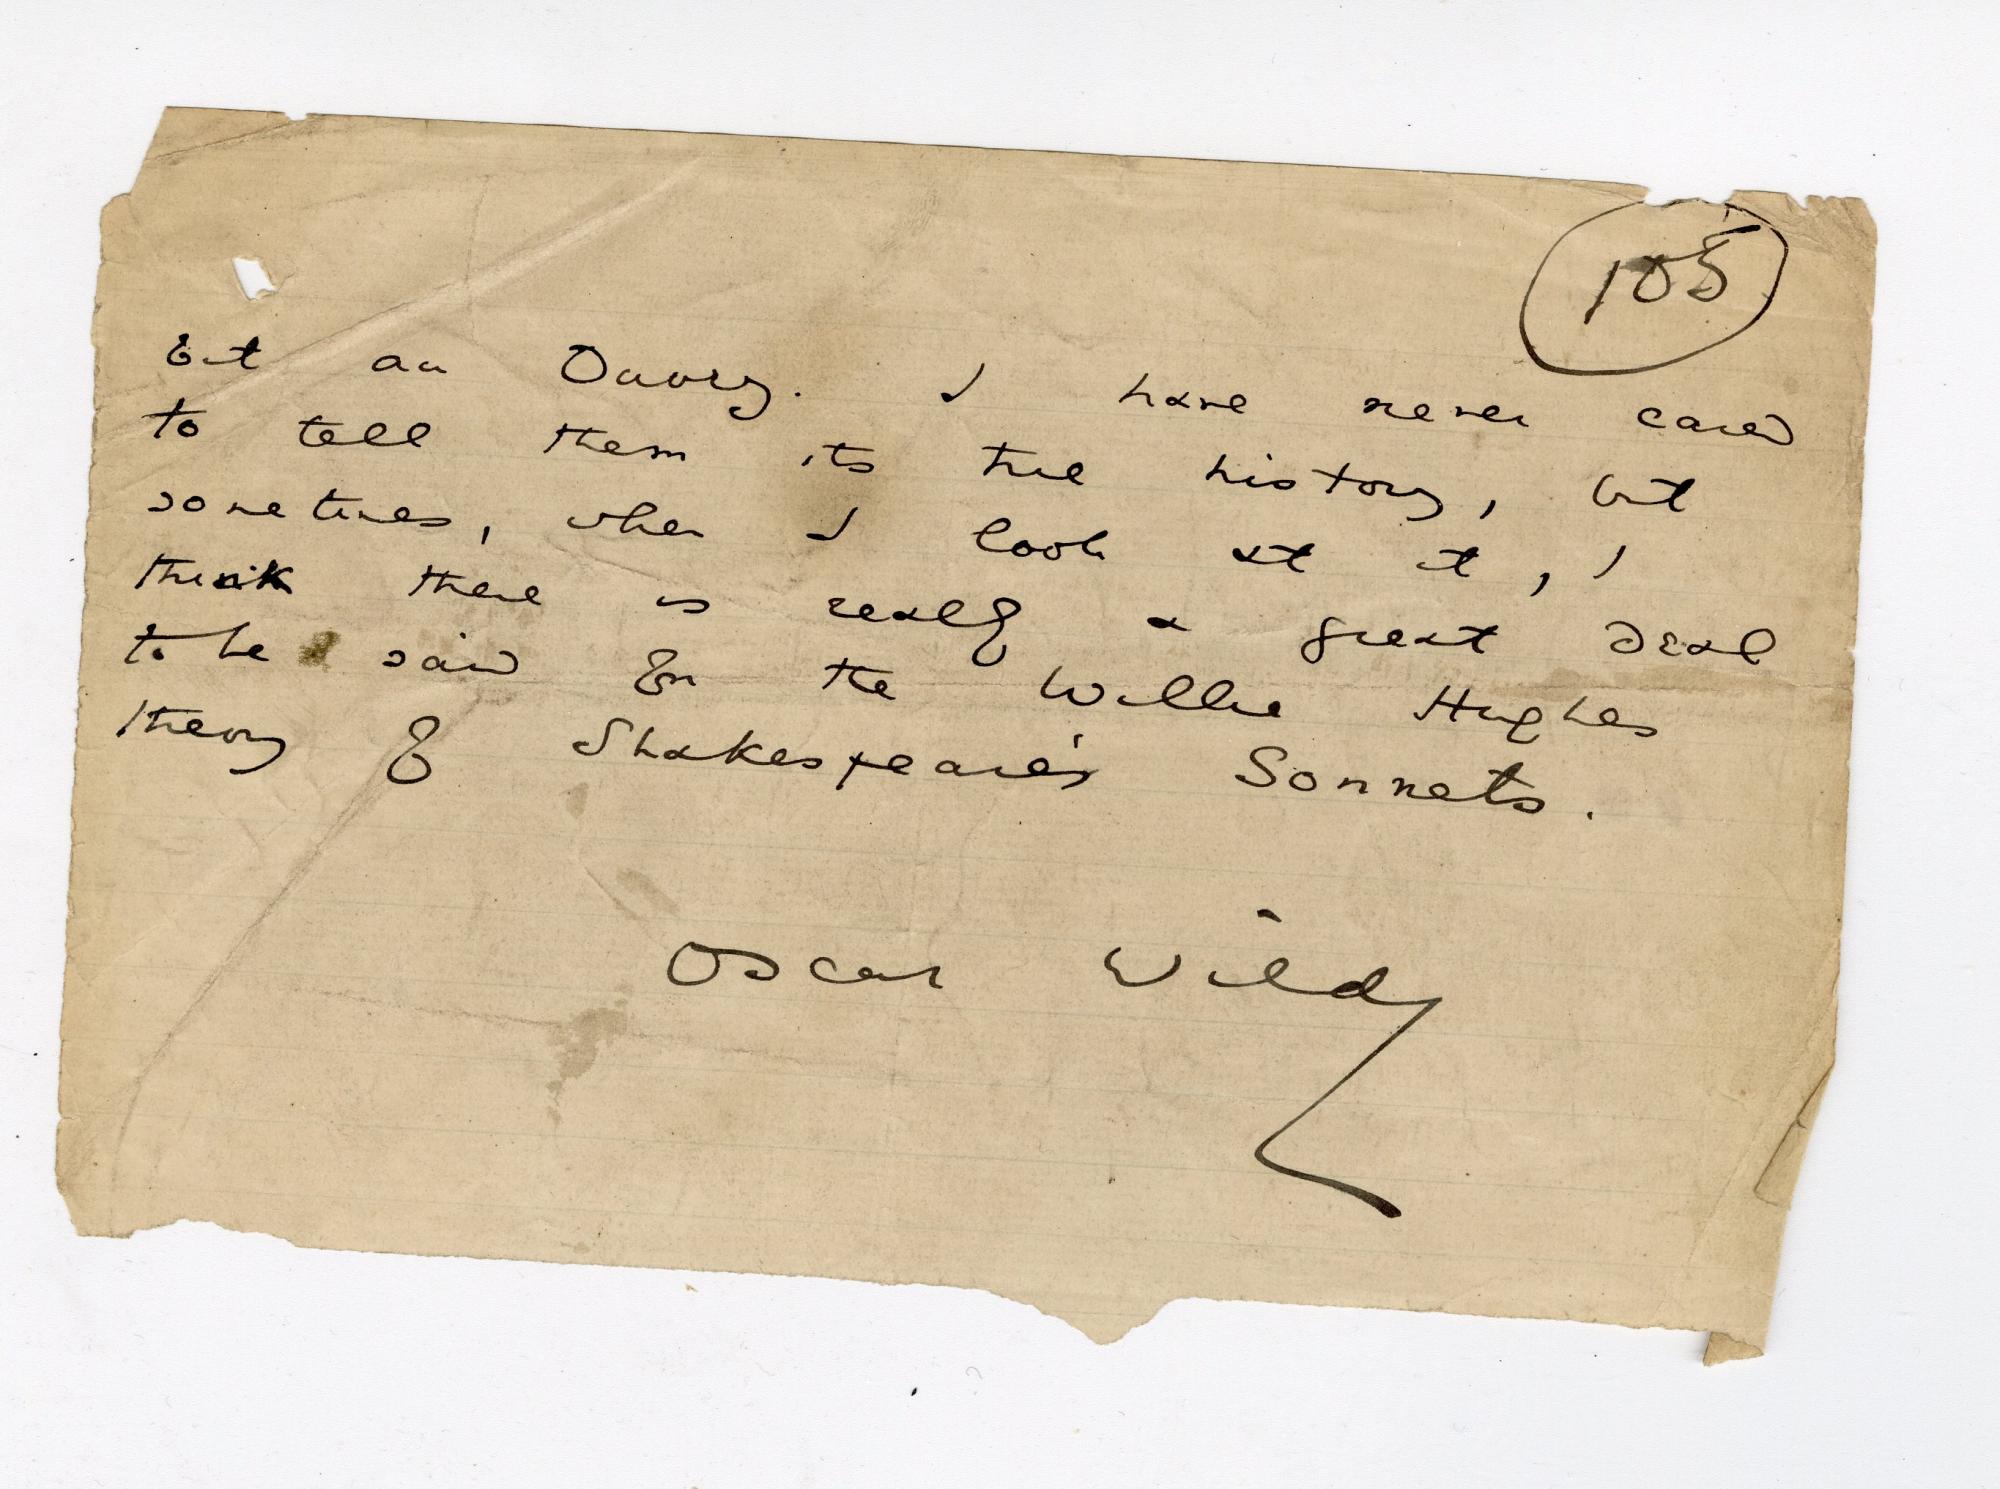 105
but an Ouvry. I have never cared
to tell them its true history, but
sometimes, when I look at it, I
think there is really a great deal
to be said for the Willie Hughes
theory of Shakespeare's Sonnets.
Oscar Wilde